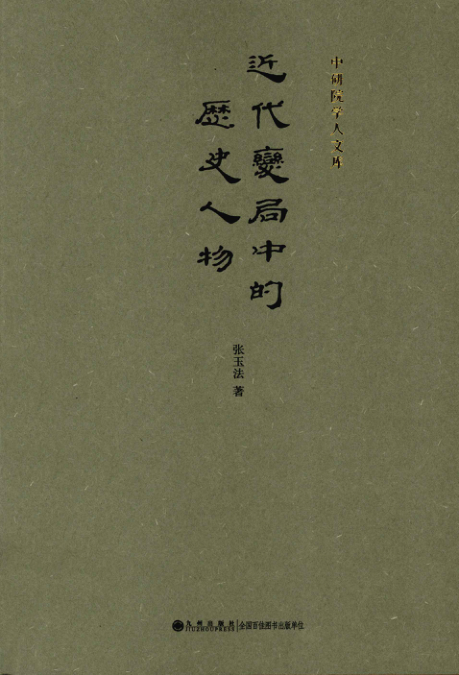 中研院学人文库
近代變局中的
歷史人物
张玉法 著
九州出版社
JIUZHOUPRESS
全国百佳图书出版单位